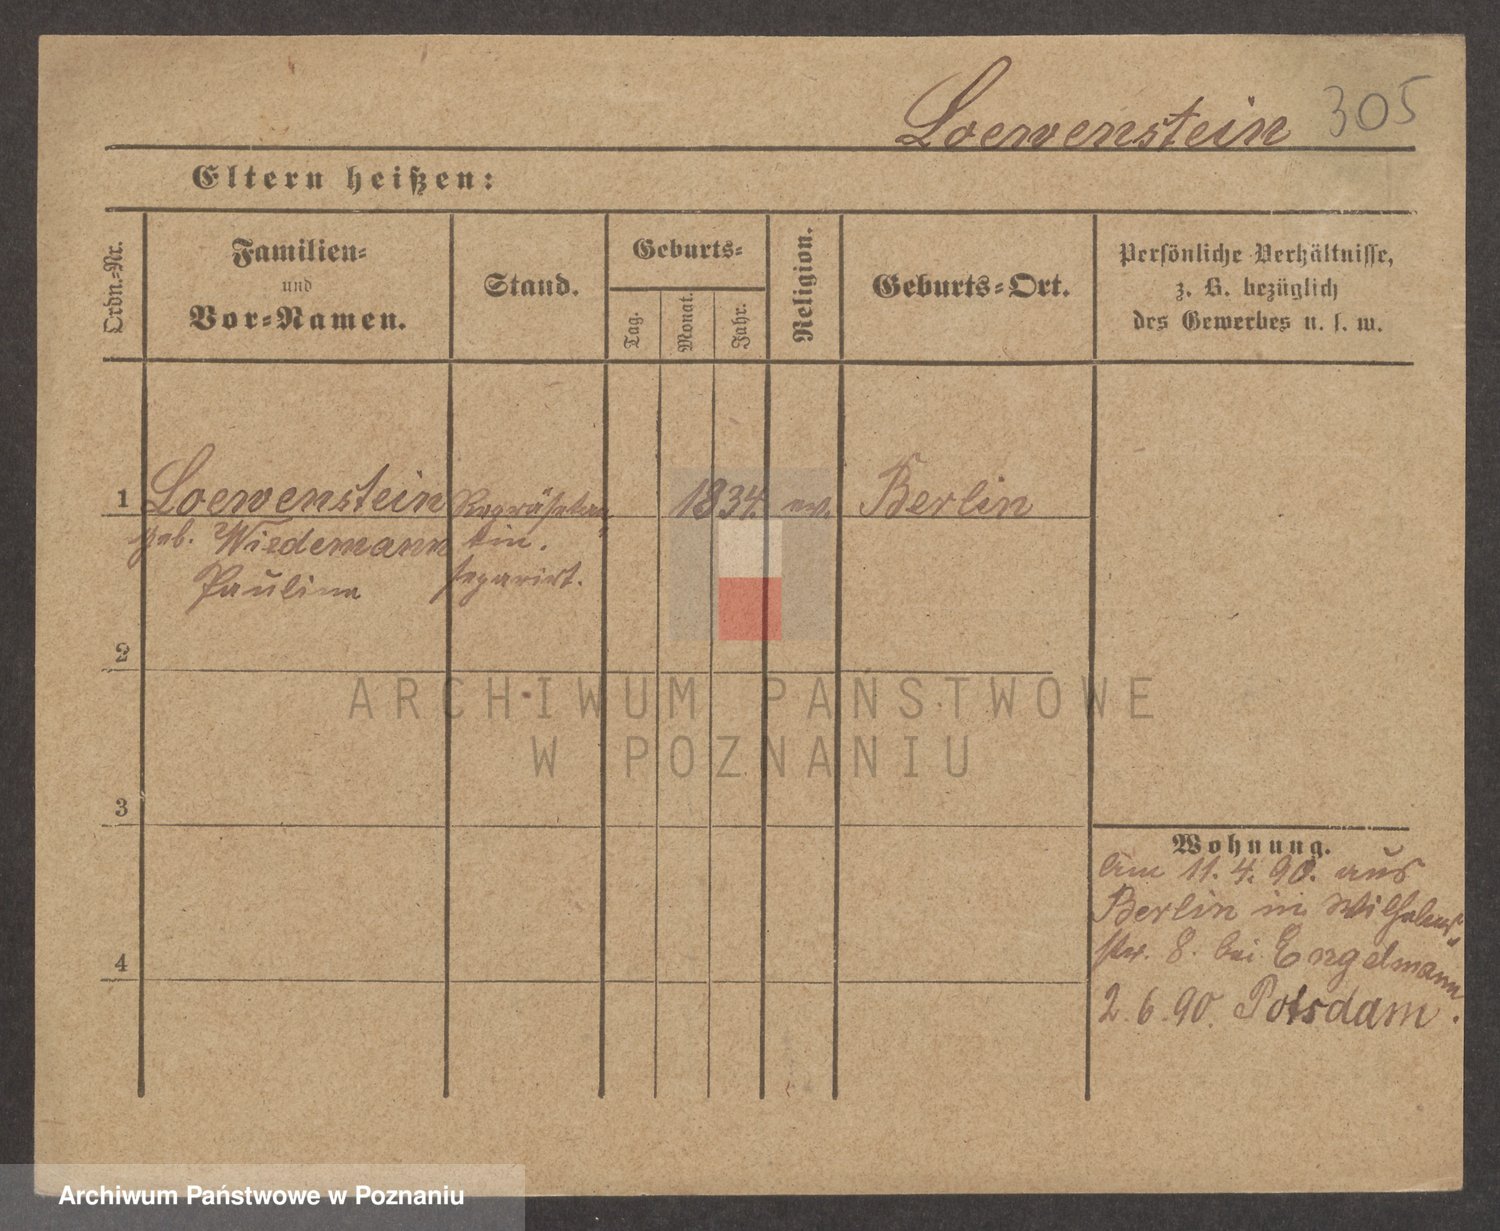 Loewenstein 305
Eltern heißen:
Ordn.-Nr.
Familien-
und
Vor-Namen.
Stand.
Geburts-
Tag.
Monat.
Jahr.
Religion.
Geburts-Ort.
Persönliche Verhältnisse,
z. B. bezüglich
des Gewerbes u. s. w.
1 Loewenstein Repräsentan- 1834. ev. Berlin
geb. Wiedemann tin.
Pauline separirt.
2
3
4
Wohnung.
Am 11.4.90. aus
Berlin in Wilhelms-
str. 8. bei Engelmann
2.6.90. Potsdam.
ARCHIWUM PAŃSTWOWE
W POZNANIU
Archiwum Państwowe w Poznaniu